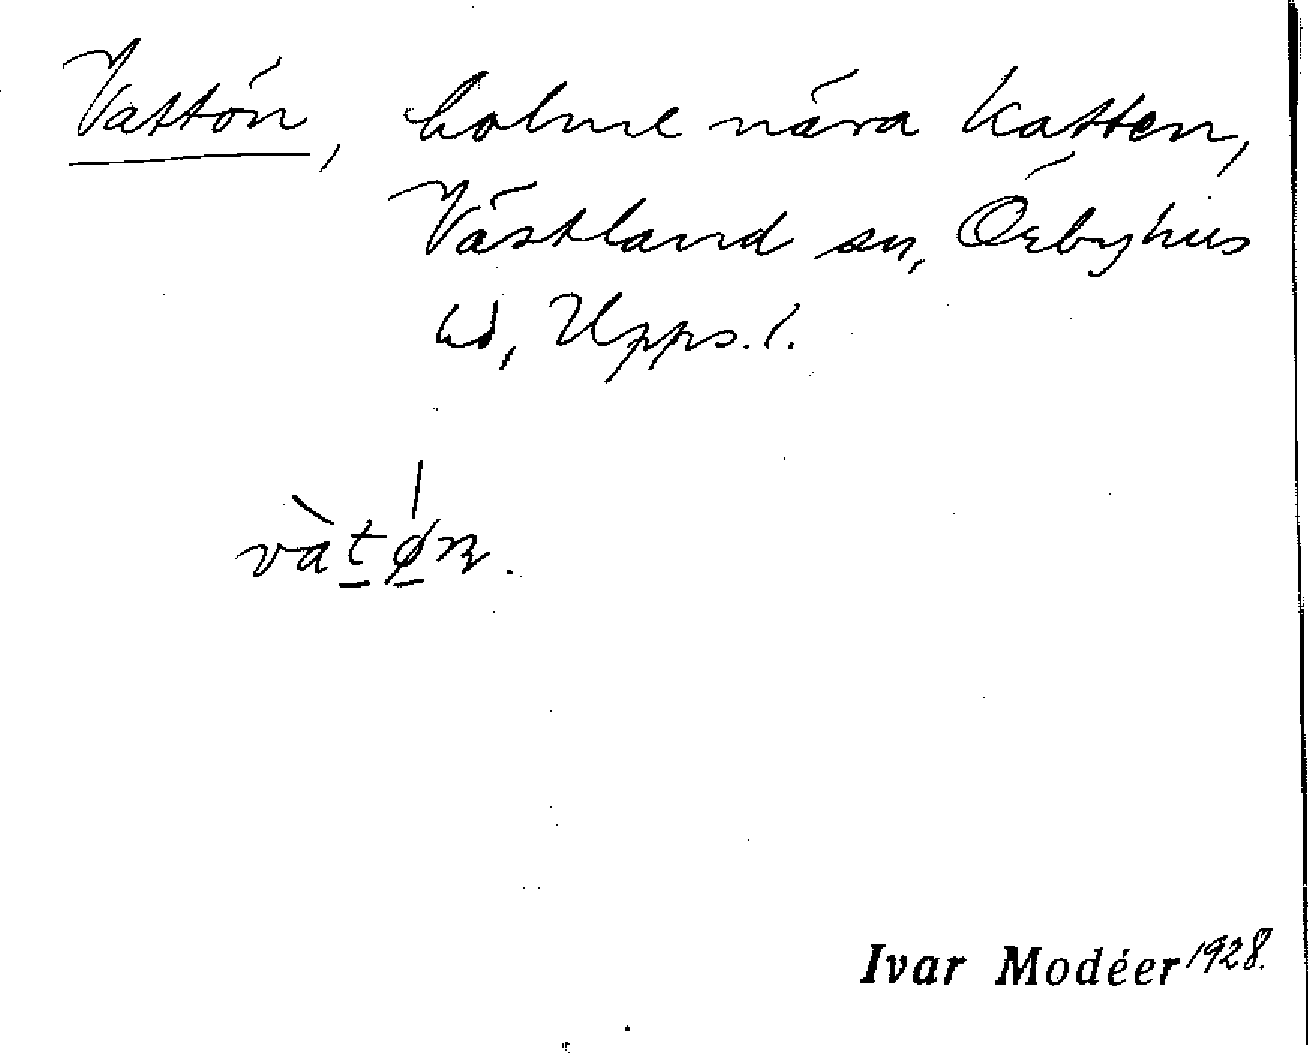 Vattön, holme nära Katten,
Västland sn, Örbyhus
hd, Upps. l.
vàt̲ø̲n.
Ivar Modéer 1928.